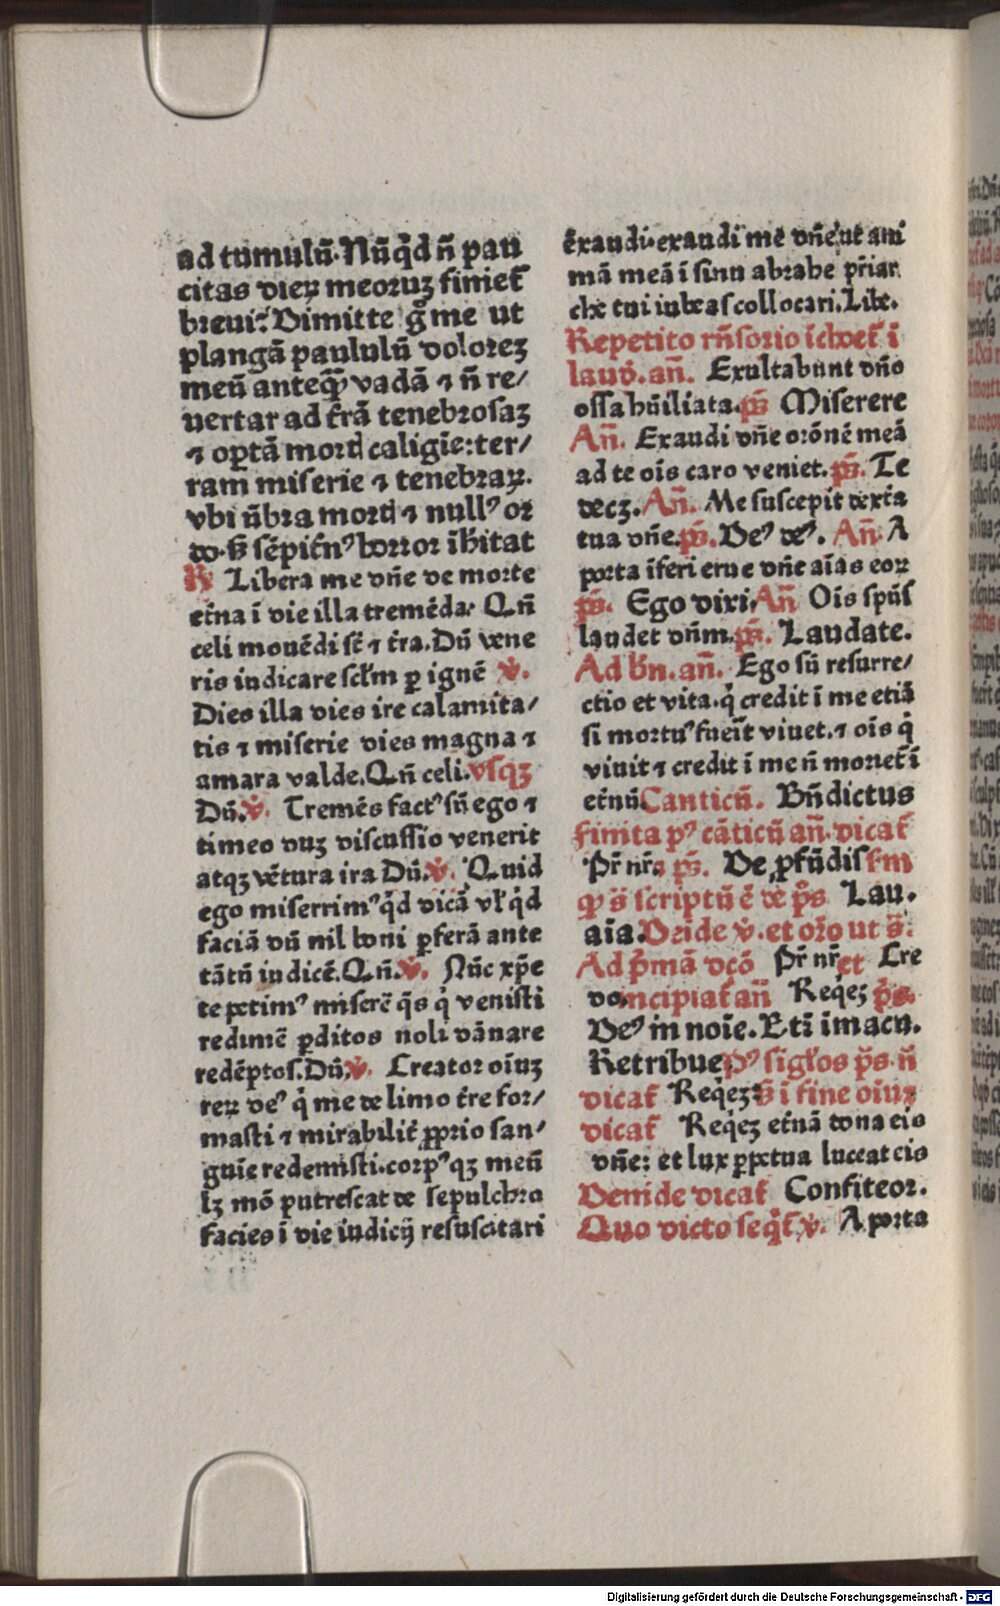 ad tumulū. Nūq̄d n̄ pau
citas dieꝝ meoꝛuꝫ finiet᷑
bꝛeui: Dimitte g̊ me ut
plangā paululū doloꝛeꝫ
meū anteq̄ꝫ vadā ⁊ n̄ re/
uertar ad t̄rā tenebꝛosaꝫ
⁊ optā moꝛt caligīe: ter/
ram miserie ⁊ tenebꝛaꝝ.
vbi ūbra moꝛt ⁊ nullꝰ oꝛ
do. sꝫ sēpit̄nꝰ hoꝛroꝛ īhītat
℟ Libera me dn̄e de moꝛte
et̄na ī die illa tremēda. Qn̄
celi mouēdi st̄ ⁊ t̄ra. Dū vene
ris iudicare scl̄m ꝑ ignē ℣.
Dies illa dies ire calamita/
tis ⁊ miserie dies magna ⁊
amara valde. Qn̄ celi. vsqꝫ
Dū. ℣. Tremēs factꝰ sū ego ⁊
timeo duꝫ discussio venerit
atqꝫ vētura ira Dū. ℣. Quid
ego miserrimꝰ q̄d dicā vl̄ q̄d
faciā dū nil boni ꝑferā ante
tātū iudicē. Qn̄. ℣. Nūc xp̄e
te petimꝰ miserē q̄s q̇ venisti
redimē ꝑditos noli dānare
redēptos. Dū. ℣. Creatoꝛ oīuꝫ
reꝝ deꝰ q̇ me de limo t̄re foꝛ/
masti ⁊ mirabilit̄ ꝓprio san/
guīe redemisti. coꝛpꝰqꝫ meū
lꝫ mō putrescat de sepulchꝛo
facies ī die iudicij resuscitari
Exaudi. exaudi me dn̄e ut ani
mā meā ī sinu abrahe pr̄iar
che tui iubeas collocari. Libe.
Repetito rn̄soꝛio īchoet᷑ ī
laud̄. an̄. Exultabunt dn̄o
ossa hūiliata. pš Miserere
An̄. Exaudi dn̄e oꝛōnē meā
ad te oīs caro veniet. pš. Te
decꝫ. An̄. Me suscepit dext̄a
tua dn̄e. pš. Deꝰ deꝰ. An̄. A
poꝛta īferi erue dn̄e aīas eoꝝ
pš. Ego dixi. An̄ Oīs spūs
laudet dn̄m. pš. Laudate.
Ad bn̄. an̄. Ego sū resurre/
ctio et vita. q̇ credit ī me etiā
si moꝛtuꝰ fueīt viuet. ⁊ oīs q̇
viuit ⁊ credit ī me n̄ moꝛiet᷑ ī
et̄nū Canticū. Bn̄dictus
finita pꝰ cāticū an̄. dicat᷑
Pr̄ nr̄. pš. De ꝓfūdis sm̄
q̄ s̄ scriptū ē de p̄s Lau.
aīa. Deīde ℣. et oꝛo ut s̄.
Ad p̄mā dcō Pr̄ nr̄ et Cre
do. incipiat᷑ an̄ Req̇eꝫ p̄s.
Deꝰ in noīe. Etī īmacu.
Retribue Pꝰ sigl̄os p̄s. n̄
dicat᷑ Req̇eꝫ sꝫ ī fine oīuꝫ
dicat᷑ Req̇eꝫ et̄nā dona eis
dn̄e: et lux ꝑpetua luceat eis
Deinde dicat᷑ Confiteoꝛ.
Quo dicto seq̇t᷑ ℣. A poꝛta
Digitalisierung gefördert durch die Deutsche Forschungsgemeinschaft - DFG